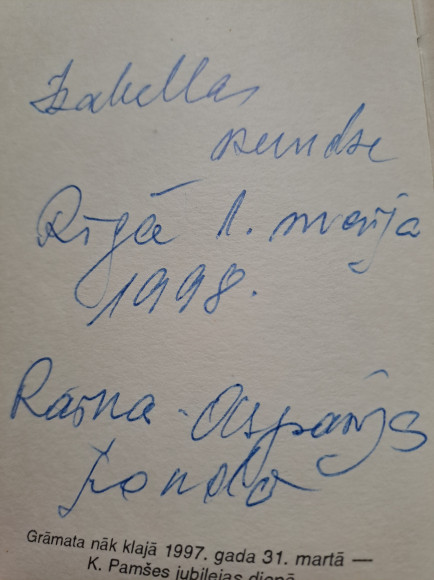 Izabellas
Rīgā 1. maija
1998.
Raiņa - Aspazijas
fonds
Grāmata nāk klajā 1997. gada 31. martā —
K. Pamšes jubilejas dienā